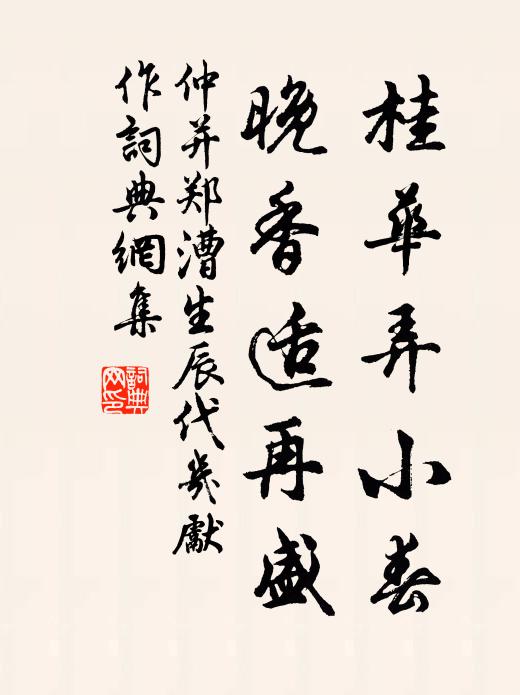 桂華弄小春
晚香适再盛
仲并郑漕生辰代幾獻
作詞典網集
詞典網印